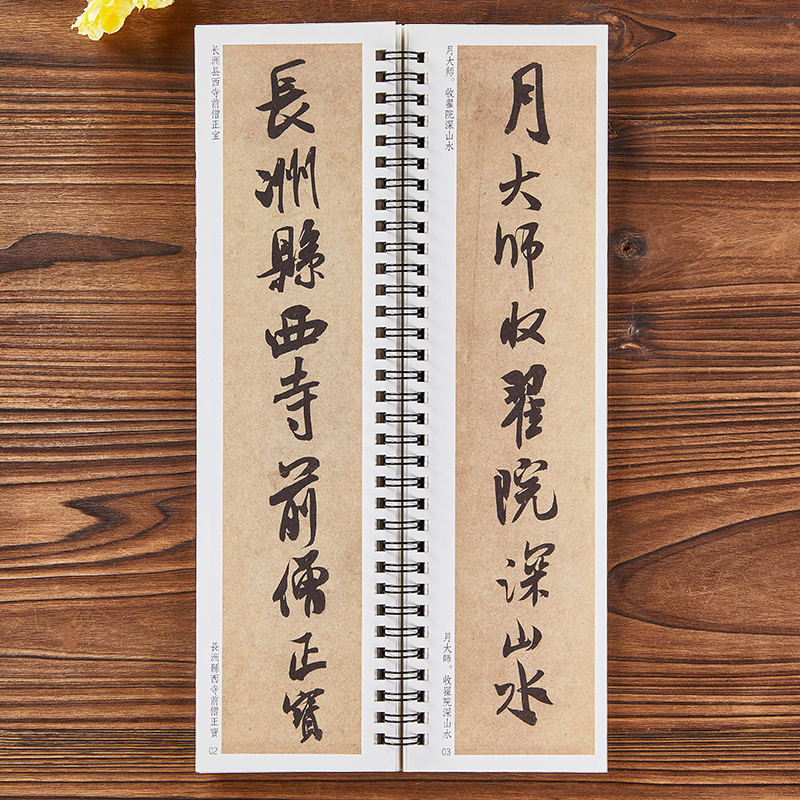 长洲县西寺前僧正宝
長洲縣西寺前僧正寳
長洲縣西寺前僧正寶
02
月大师。收翟院深山水
月大師收翟院深山水
月大師。收翟院深山水
03